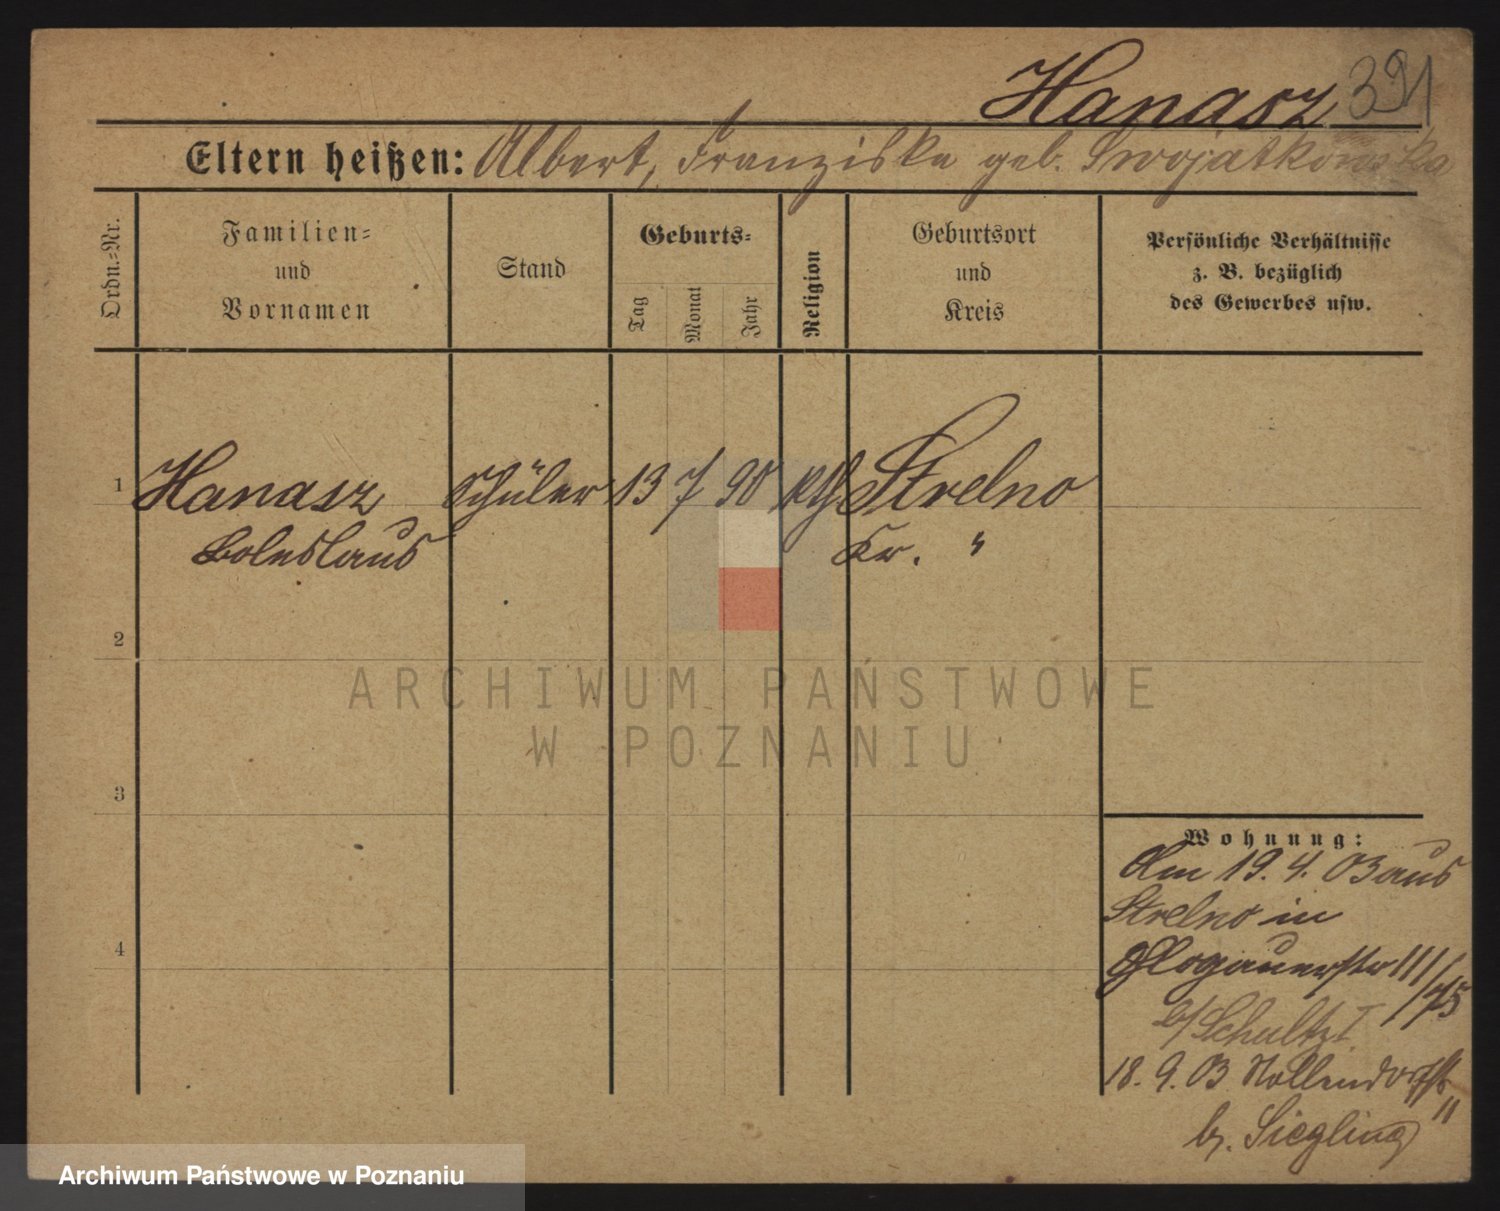 Hanasz 391
Eltern heißen: Albert, Franziska geb. Swojatkowska
Ordn.=Nr.
Familien=
und
Vornamen
Stand
Geburts=
Tag
Monat
Jahr
Religion
Geburtsort
und
Kreis
Persönliche Verhältnisse
z. B. bezüglich
des Gewerbes usw.
1 Hanasz Schüler 13 7 90 kth Strelno
Boleslaus Kr. "
2
ARCHIWUM PAŃSTWOWE
W POZNANIU
3
Wohnung:
Am 19. 4. 03 aus
Strelno in
4
Glogauerstr 111/75
b/ Schultz I
18. 9. 03 Nollendorfstr
11
b. Siegling
Archiwum Państwowe w Poznaniu